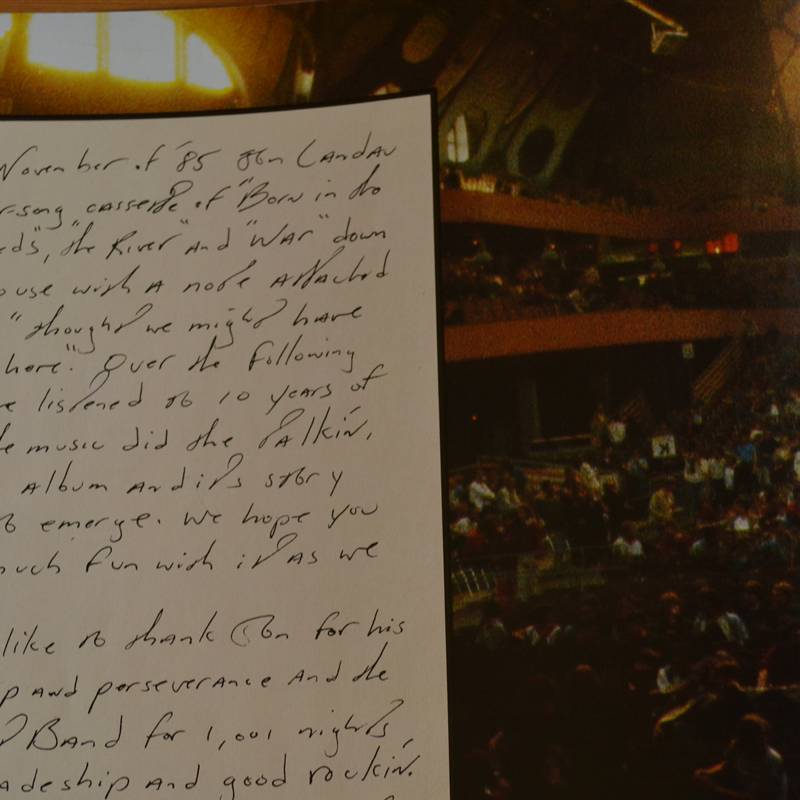 November of '85 Jon Landau
r-song cassette of "Born in the
eds", "the River" and "War" down
ouse with a note attached
"thought we might have
here". Over the following
we listened to 10 years of
he music did the talkin'.
album and it's story
to emerge. We hope you
much fun with it as we
like to thank Jon for his
p and perseverance and the
Band for 1,001 nights,
adeship and good rockin'.